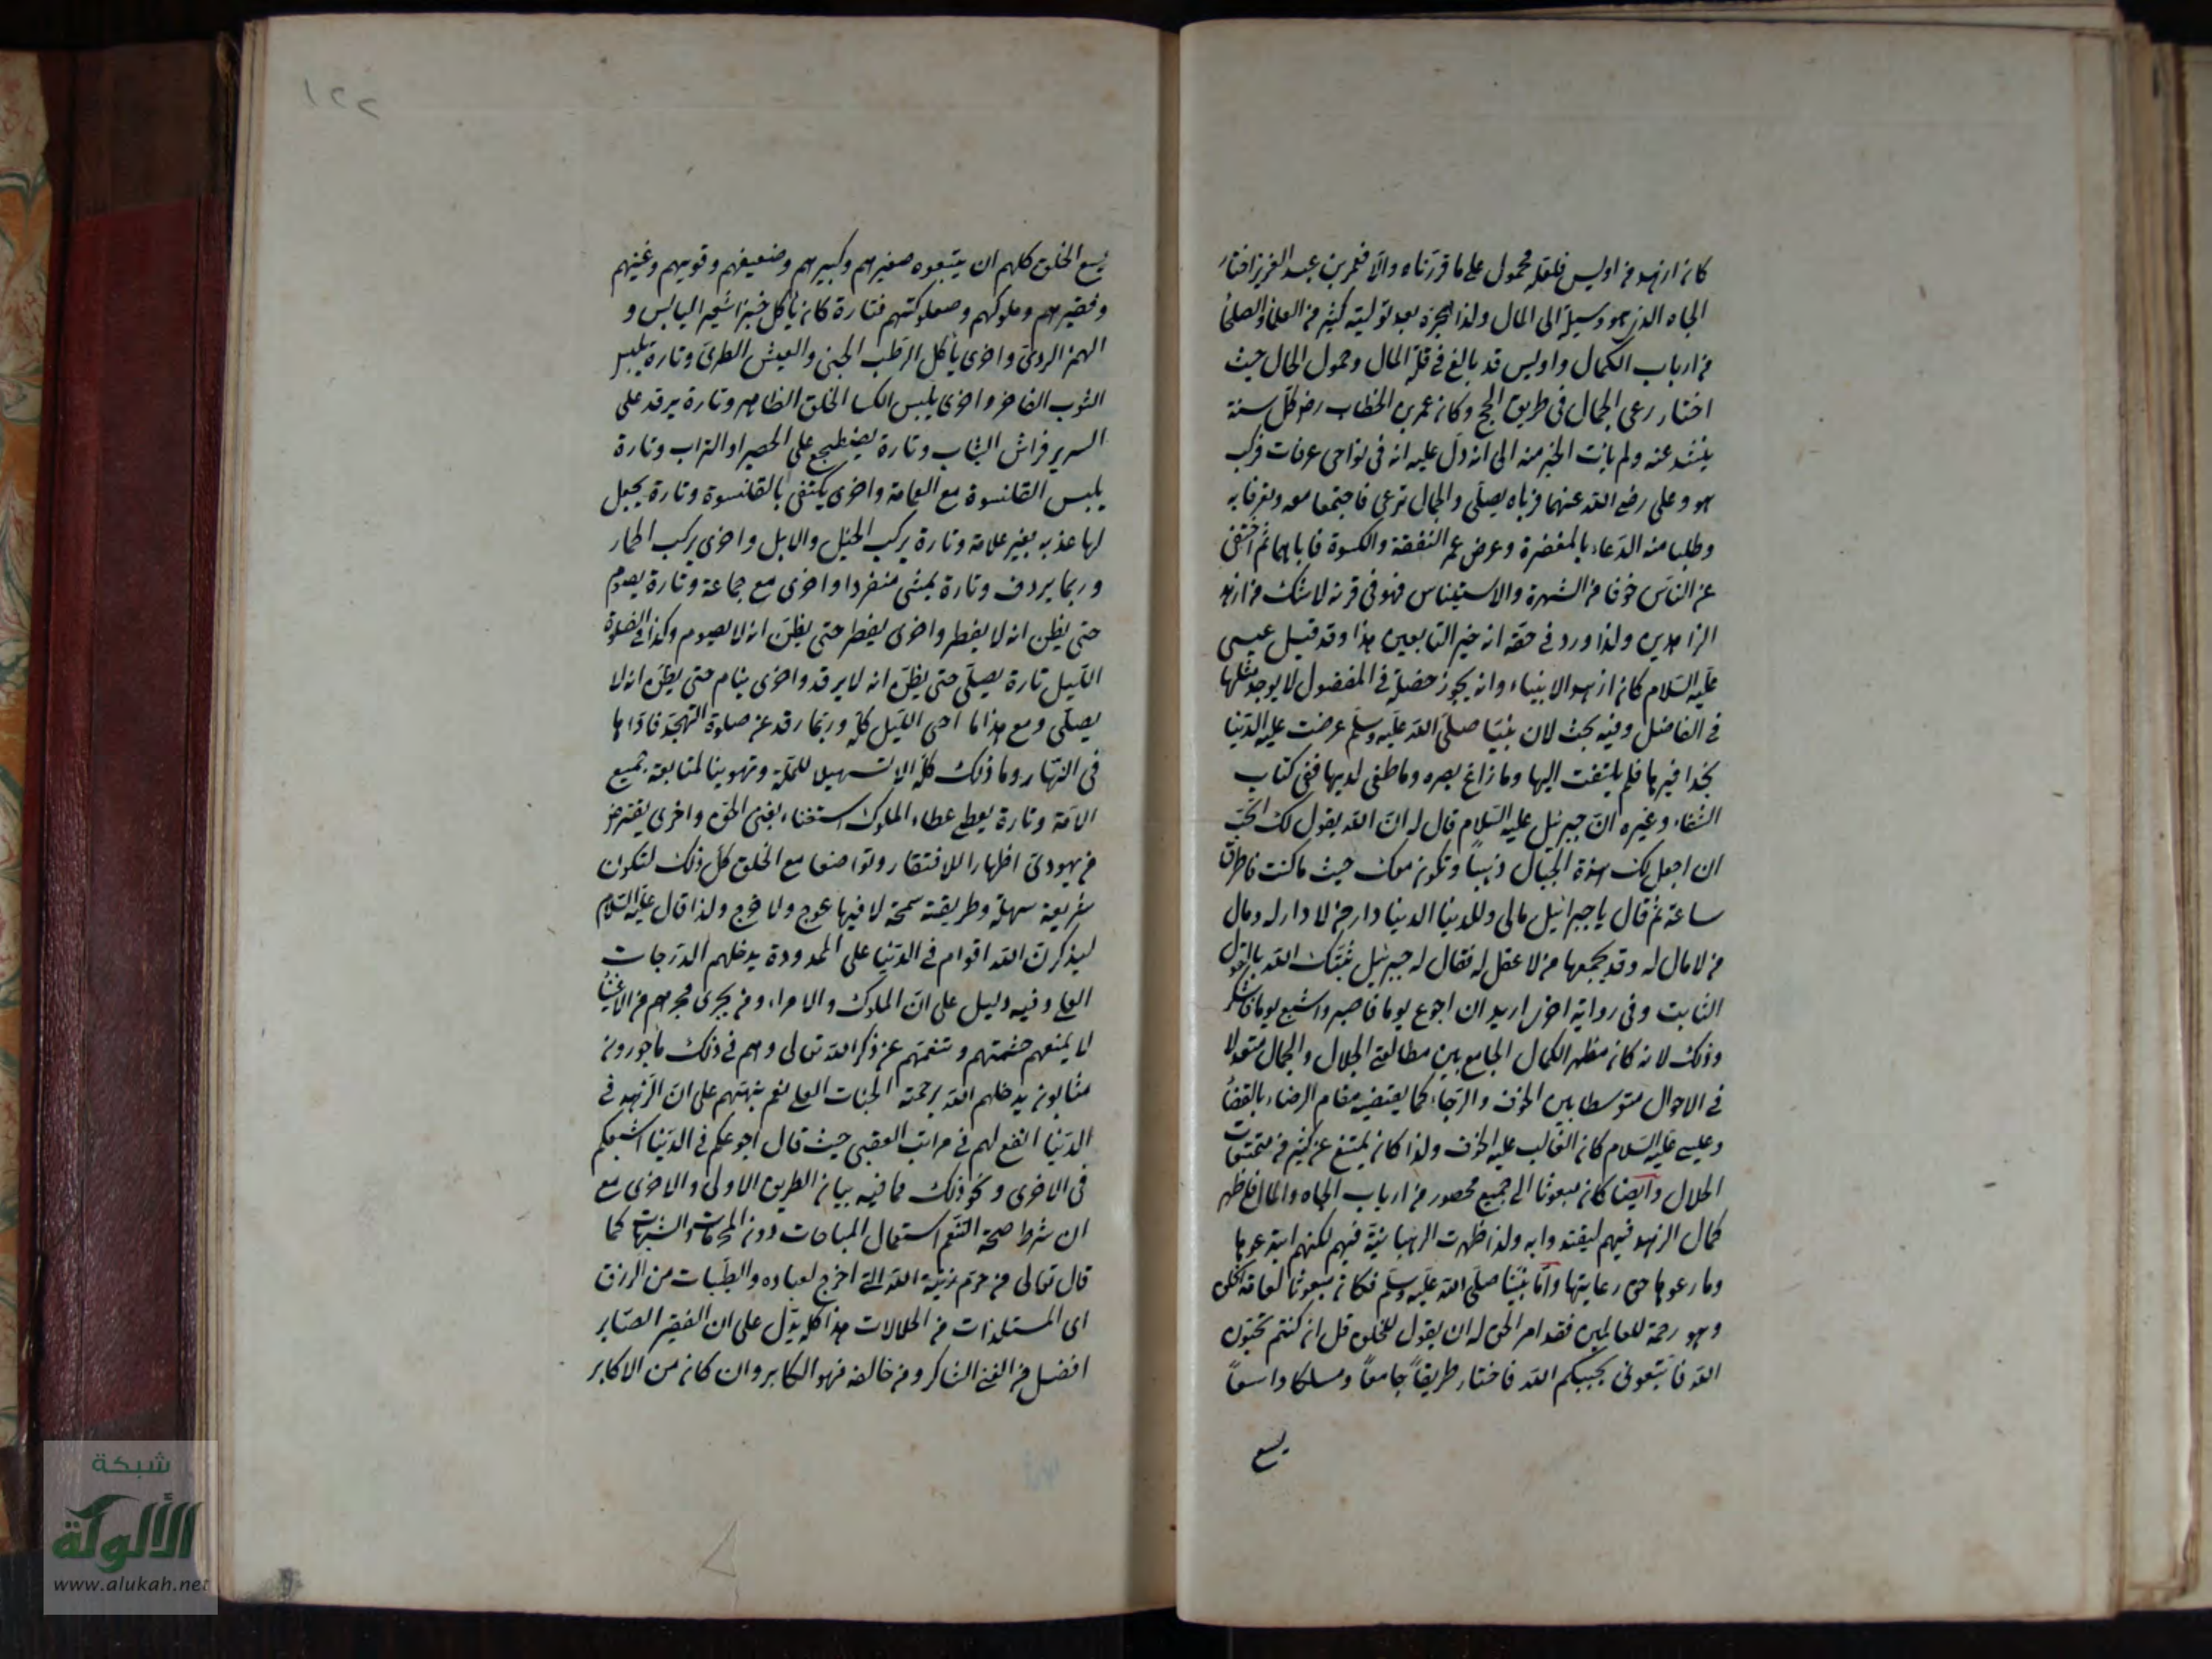 كان ازهد من اويس فلعله محمول على ما قررناه والا فعمر بن عبد العزيز اختار
الجاه الذي هو وسيلة الى المال ولذا هجره بعد توليته كثير من العلماء والصلحاء
من ارباب الكمال واويس قد بالغ في قلة المال وخمول الحال حيث
اختار رعي الجمال في طريق الحج وكان عمر بن الخطاب رضه كل سنة
ينشد عنه ولم يأت الخبر منه الى انه دل عليه انه في نواحي عرفات فركب
هو وعلي رضي الله عنهما فرأياه يصلي والجمال ترعى فاجتمعا معه وتعرفا به
وطلبا منه الدعاء بالمغفرة وعرض عمر النفقة والكسوة فاباهما ثم اختفى
عن الناس خوفا من الشهرة والاستيناس فهو في قرنه لا شك من ازهد
الزاهدين ولذا ورد في حقه انه خير التابعين هذا وقد قيل عيسى
عليه السلام كان ازهد الانبياء وانه يجوز خصلة في المفضول لا يوجد مثلها
في الفاضل وفيه بحث لان نبينا صلى الله عليه وسلم عرضت عليه الدنيا
بحذافيرها فلم يلتفت اليها وما زاغ بصره وما طغى لديها ففي كتاب
الشفاء وغيره ان جبرئيل عليه السلام قال له ان الله يقول لك اتحب
ان اجعل لك هذه الجبال ذهبا وتكون معك حيث ما كنت فاطرق
ساعة ثم قال يا جبرائيل مالي وللدنيا الدنيا دار من لا دار له ومال
من لا مال له وقد يجمعها من لا عقل له فقال له جبرئيل ثبتك الله بالقول
الثابت وفي رواية اخرى اريد ان اجوع يوما فاصبر واشبع يوما فاشكر
وذلك لانه كان مظهر الكمال الجامع بين مطالعتي الجلال والجمال معتدلا
في الاحوال متوسطا بين الخوف والرجاء كما يقتضيه مقام الرضاء بالقضاء
وعيسى عليه السلام كان الغالب عليه الخوف ولذا كان يمتنع عن كثير من تمتعات
الحلال وايضا كان مبعوثا الى جميع محصور من ارباب الجاه والمال فاظهر
كمال الزهد فيهم ليقتدوا به ولذا ظهرت الرهبانية فيهم لكنهم ابتدعوها
وما رعوها حق رعايتها واما نبينا صلى الله عليه وسلم فكان مبعوثا لعامة الخلق
وهو رحمة للعالمين فقد امر الحق له ان يقول للخلق قل ان كنتم تحبون
الله فاتبعوني يحببكم الله فاختار طريقا جامعا ومسلكا واسعا
يسع
١٢٢
يسع الخلق كلهم ان يتبعوه صغيرهم وكبيرهم وضعيفهم وقويهم وغنيهم
وفقيرهم وملوكهم وصعلوكتهم فتارة كان يأكل خبز الشعير اليابس و
الردئ واخرى يأكل الرطب الجنى والعيش الطرى وتارة يلبس
الثوب الفاخر واخرى يلبس الكساء الخلق الظاهر وتارة يرقد على
السرير فراش الثياب وتارة يضطجع على الحصير او التراب وتارة
يلبس القلنسوة مع العمامة واخرى يكتفى بالقلنسوة وتارة يجعل
لها عذبه بغير علامة وتارة يركب الخيل والابل واخرى يركب الحمار
وربما يردف وتارة يمشي منفردا واخرى مع جماعة وتارة يصوم
حتى يظن انه لا يفطر واخرى يفطر حتى يظن انه لا يصوم وكذا في الصلوة
الليل تارة يصلي حتى يظن انه لا يرقد واخرى ينام حتى يظن انه لا
يصلي ومع هذا ما احى الليل كله وربما رقد عن صلوة التهجد فاداها
في النهار وما ذلك كله الا تسهيلا للملة وتهوينا لمتابعة جميع
الامة وتارة يعطي عطاء الملوك استغناء بغنى الحق واخرى يقترض
من يهودي اظهارا للافتقار وتواضعا مع الخلق كل ذلك لتكون
شريعة سهلة وطريقته سمحة لا فيها عوج ولا حرج ولذا قال عليه السلام
ليذكرن الله اقوام في الدنيا على الممدودة يدخلهم الدرجات
العلى وفيه دليل على ان الملوك والامراء ومن يجري مجراهم من الاغنياء
لا يمنعهم حشمتهم وتنعمهم عن ذكر الله تعالى وهم في ذلك مأجورون
مثابون يدخلهم الله برحمته الجنات العلى نعم نبههم على ان الزهد في
الدنيا انفع لهم في مراتب العقبى حيث قال اجوعكم في الدنيا اشبعكم
في الاخرى ونحو ذلك مما فيه بيان الطريق الاولى والاحرى مع
ان شرط صحة التنعم استعمال المباحات دون المحرمات والشبهات كما
قال تعالى من حرم زينة الله التي اخرج لعباده والطيبات من الرزق
اى المستلذات من الحلالات هذا كله يدل على ان الفقير الصابر
افضل من الغني الشاكر ومن خالفه فهو المكابر وان كان من الاكابر
شبكة
الألوكة
www.alukah.net